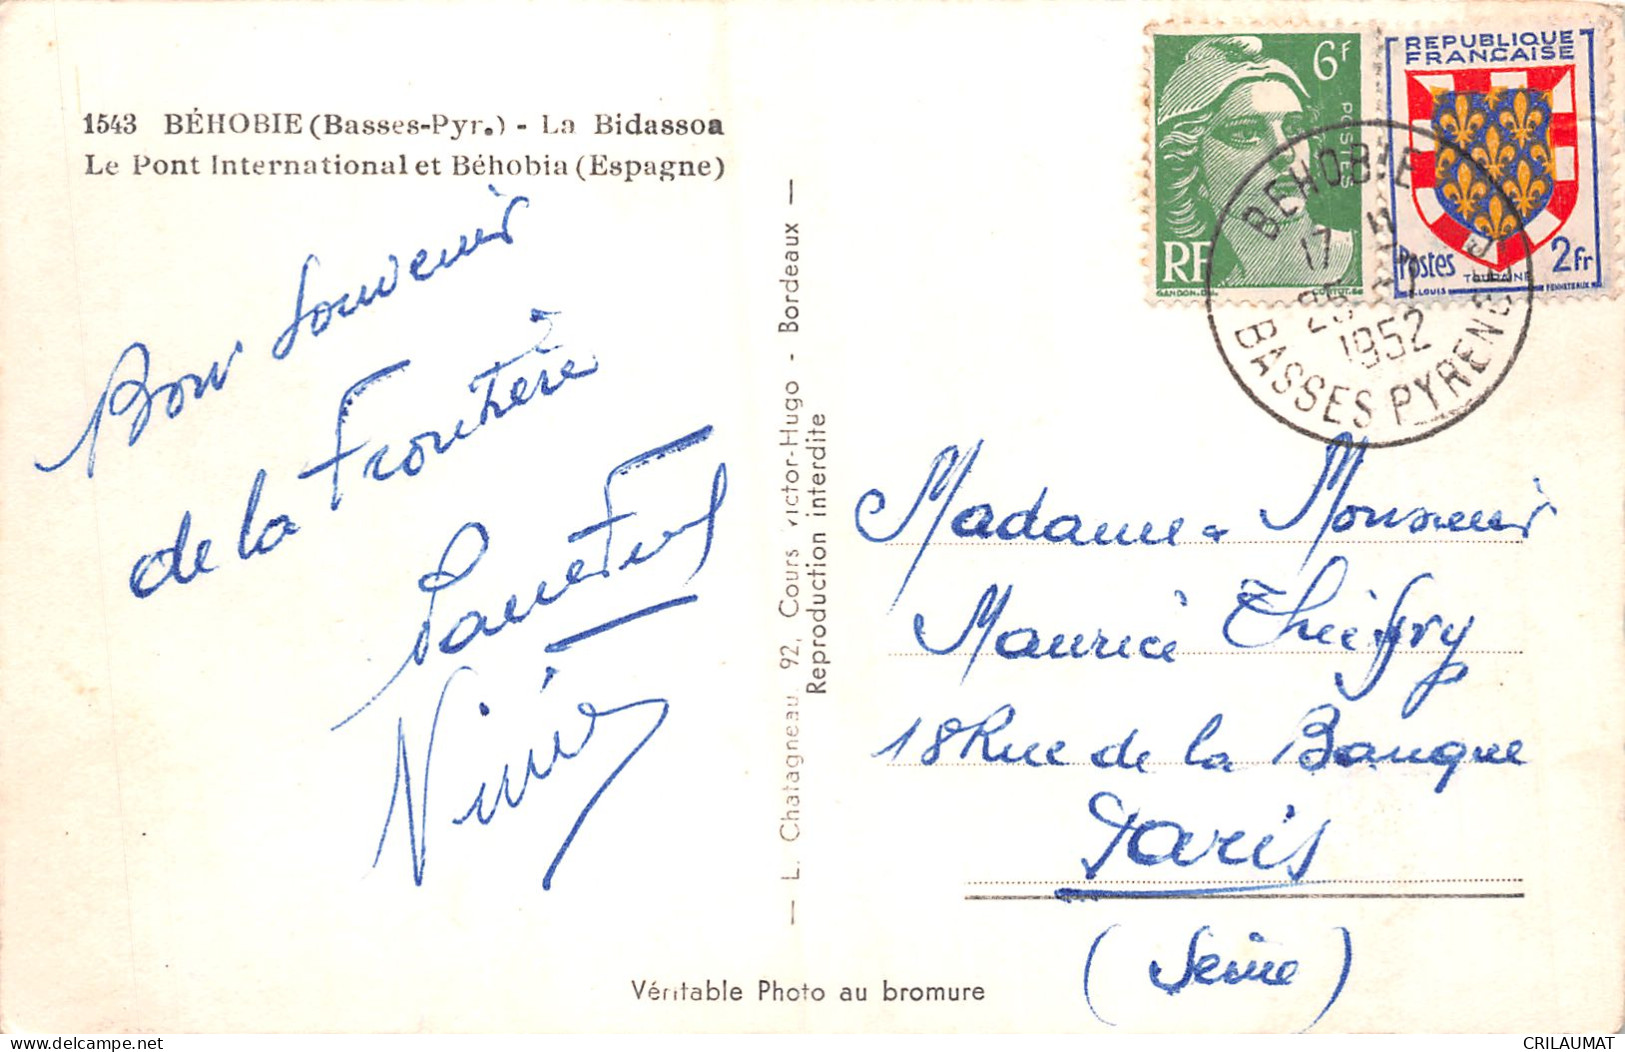 1543 BÉHOBIE (Basses-Pyr.) - La Bidassoa
Le Pont International et Béhobia (Espagne)
Bon Souvenir
de la Frontière
L. Chatagneau, 92, Cours Victor-Hugo - Bordeaux
Reproduction interdite
6F
POSTES
RF
GANDON. DEL.
REPUBLIQUE
FRANCAISE
Postes
TOURAINE
2fr
R. LOUIS
BEHOBIE
17 H
1952
BASSES PYRENEES
Madame & Monsieur
Maurice
18 Rue de la Banque
Paris
(Seine)
Véritable Photo au bromure
CRILAUMAT